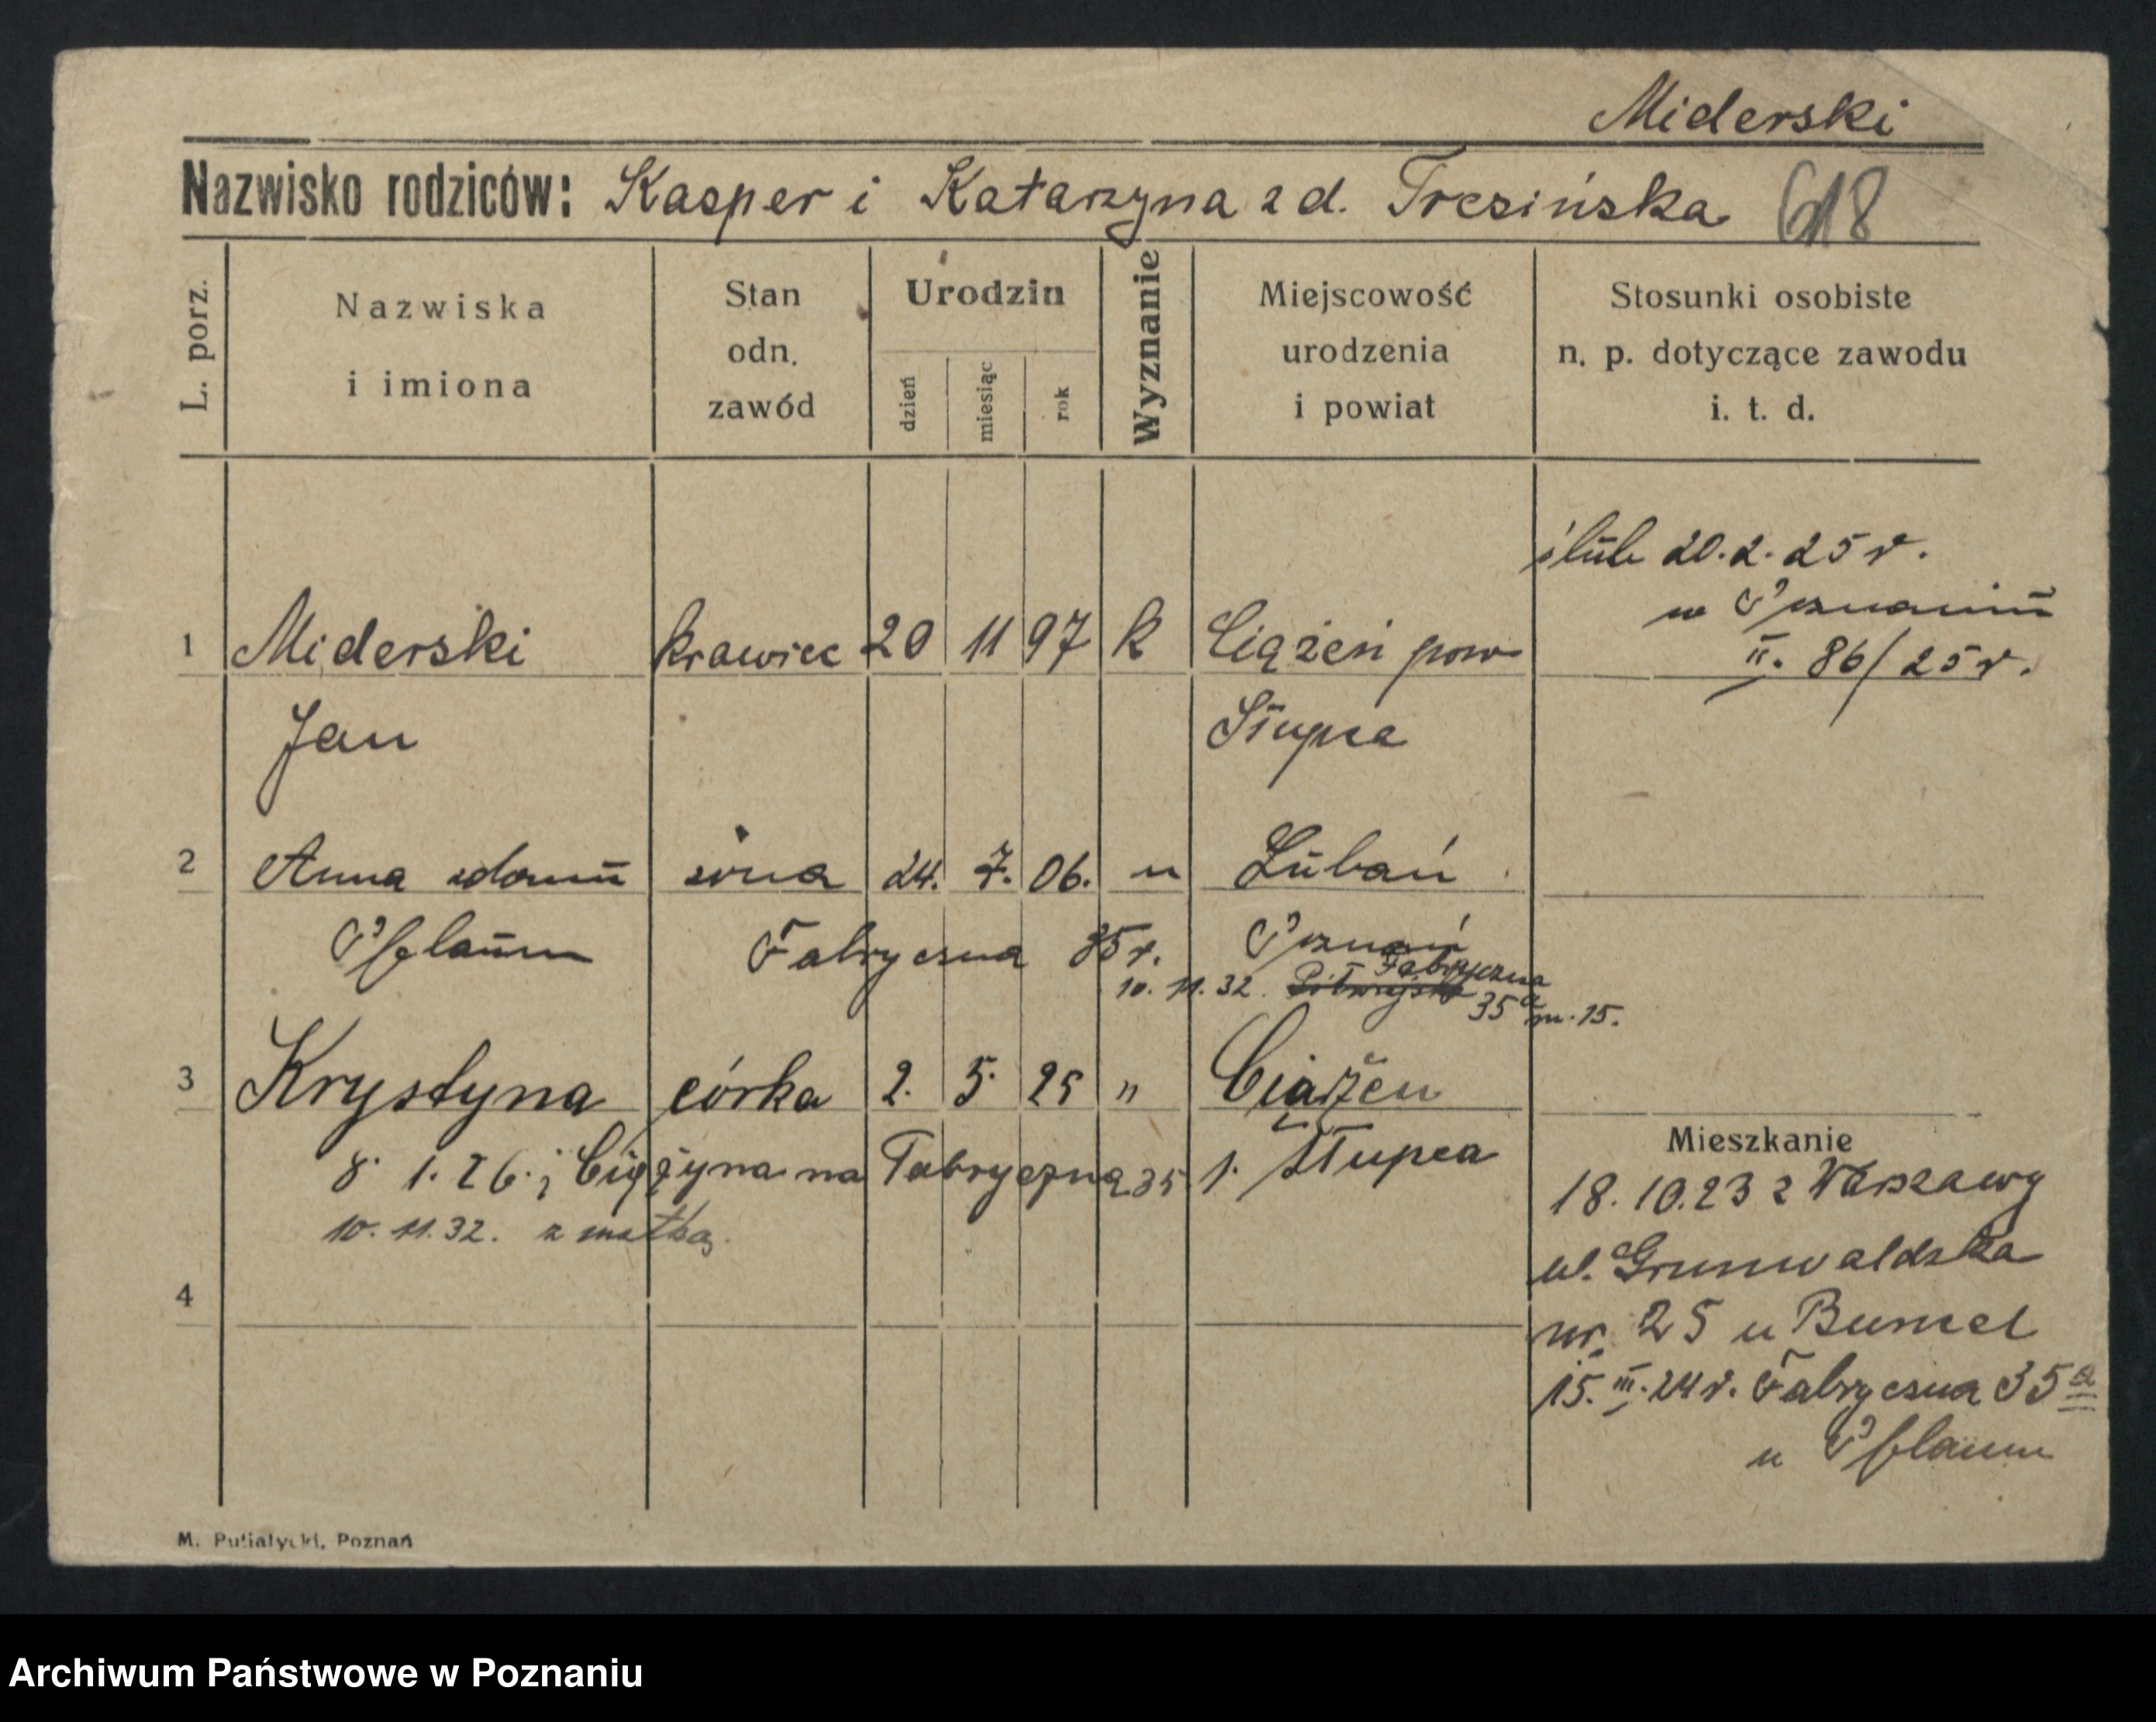 Miderski
Nazwisko rodziców: Kasper i Katarzyna z d. Trezińska 618
L. porz.
Nazwiska
i imiona
Stan
odn.
zawód
Urodzin
dzień
miesiąc
rok
Wyznanie
Miejscowość
urodzenia
i powiat
Stosunki osobiste
n. p. dotyczące zawodu
i. t. d.
ślub 20.2.25 r.
w Poznaniu
II. 86/25 r.
1 Miderski krawiec 20 11 97 k Ciążeń pow
Jan Słupca
2 Anna z domu żona 24. 7. 06. " Lubań
Pflaum Fabryczna 35 r. Poznań
10. 11. 32. Fabryczna
35a m. 15.
3 Krystyna córka 2. 5. 25 " Ciążeń
8. 1. 26. z Ciążyna na Fabryczną 35 p. Słupca
10. 11. 32. z matką.
4
Mieszkanie
18.10.23 z Warszawy
ul. Grunwaldska
nr. 25 u Bumel
15. III. 24 r. Fabryczna 35a
u Pflaum
M. Putiatycki, Poznań
Archiwum Państwowe w Poznaniu